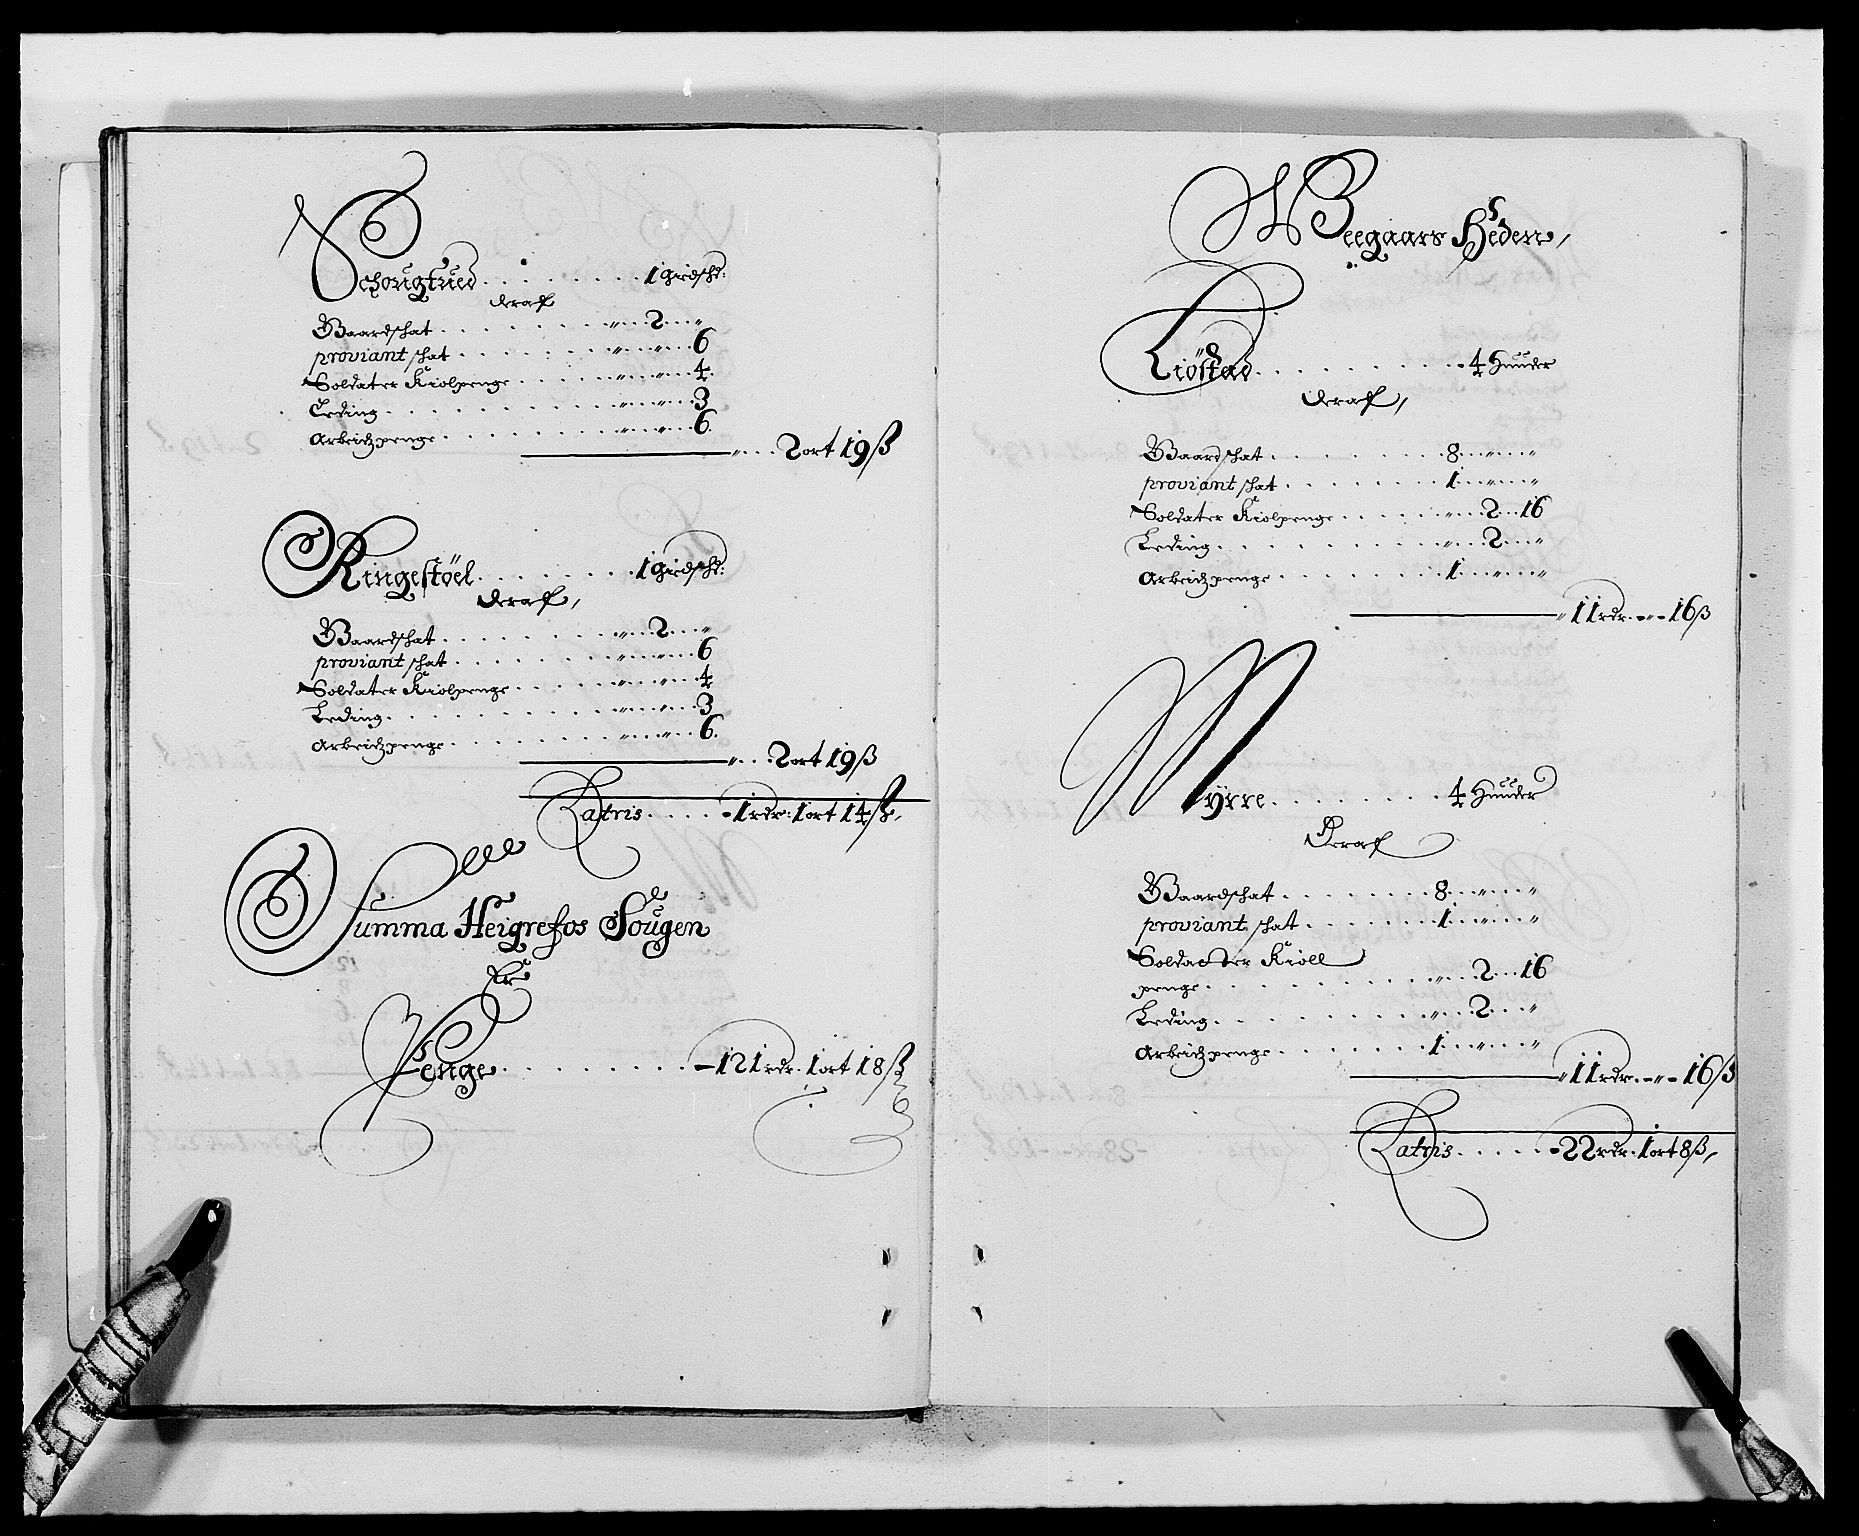 Schougtued . . . . . . . 1 giedsk:
deraf
Gaardschat . . . . . . . „ . . 2 . . „
proviant schat . . . . . . „ . . „ . . 6
Soldater Kiolpenge . . . . . „ . . „ . . 4
Leding . . . . . . . . „ . . „ . . 3
Arbeidzpenge . . . . . . . „ . . „ . . 6
„ . . . 2 ort 19 ß
Ringestöel . . . . . . . 1 giedsk:
deraf,
Gaardschat . . . . . . . „ . . 2 . . „
proviant schat . . . . . . „ . . „ . . 6
Soldater Kiolpenge . . . . . „ . . „ . . 4
Leding . . . . . . . . „ . . „ . . 3
Arbeidzpenge . . . . . . . „ . . „ . . 6.
„ . . . 2 ort 19 ß
Latris . . . . - 1 rdr: 1 ort 14 ß,
Summa Heigrefos Sougen
Er
Penge . . . . . . . . - 121 rdr. 1 ort 18 ß
Weegaars Heden,
Liöstad . . . . . . . . 4 Huuder
deraf,
Gaardschat . . . . . . . 8 . . „ . . „
proviant schat . . . . . . 1 . . „ . . „
Soldater Kiolpenge . . . . . „ . . 2 . . 16
Leding . . . . . . . . „ . . 2 . . „
Arbeidzpenge . . . . . . . 1 . . „ . . „
„ 11 rdr. - „ - 16 ß
Myrre . . . . . . . 4 Huuder
Deraf
Gaardschat . . . . . . . 8 . . „ . . „
proviant schat . . . . . . 1 . . „ . . „
Soldatter Kioll
penge . . . . . . . . „ . . 2 . . 16
Leding . . . . . . . . „ . . 2 . . „
Arbeidzpenge . . . . . . . 1 . . „ . . „
„ 11 rdr. - „ - 16 ß
Latris . . . . . - 22 rdr. 1 ort 8 ß,